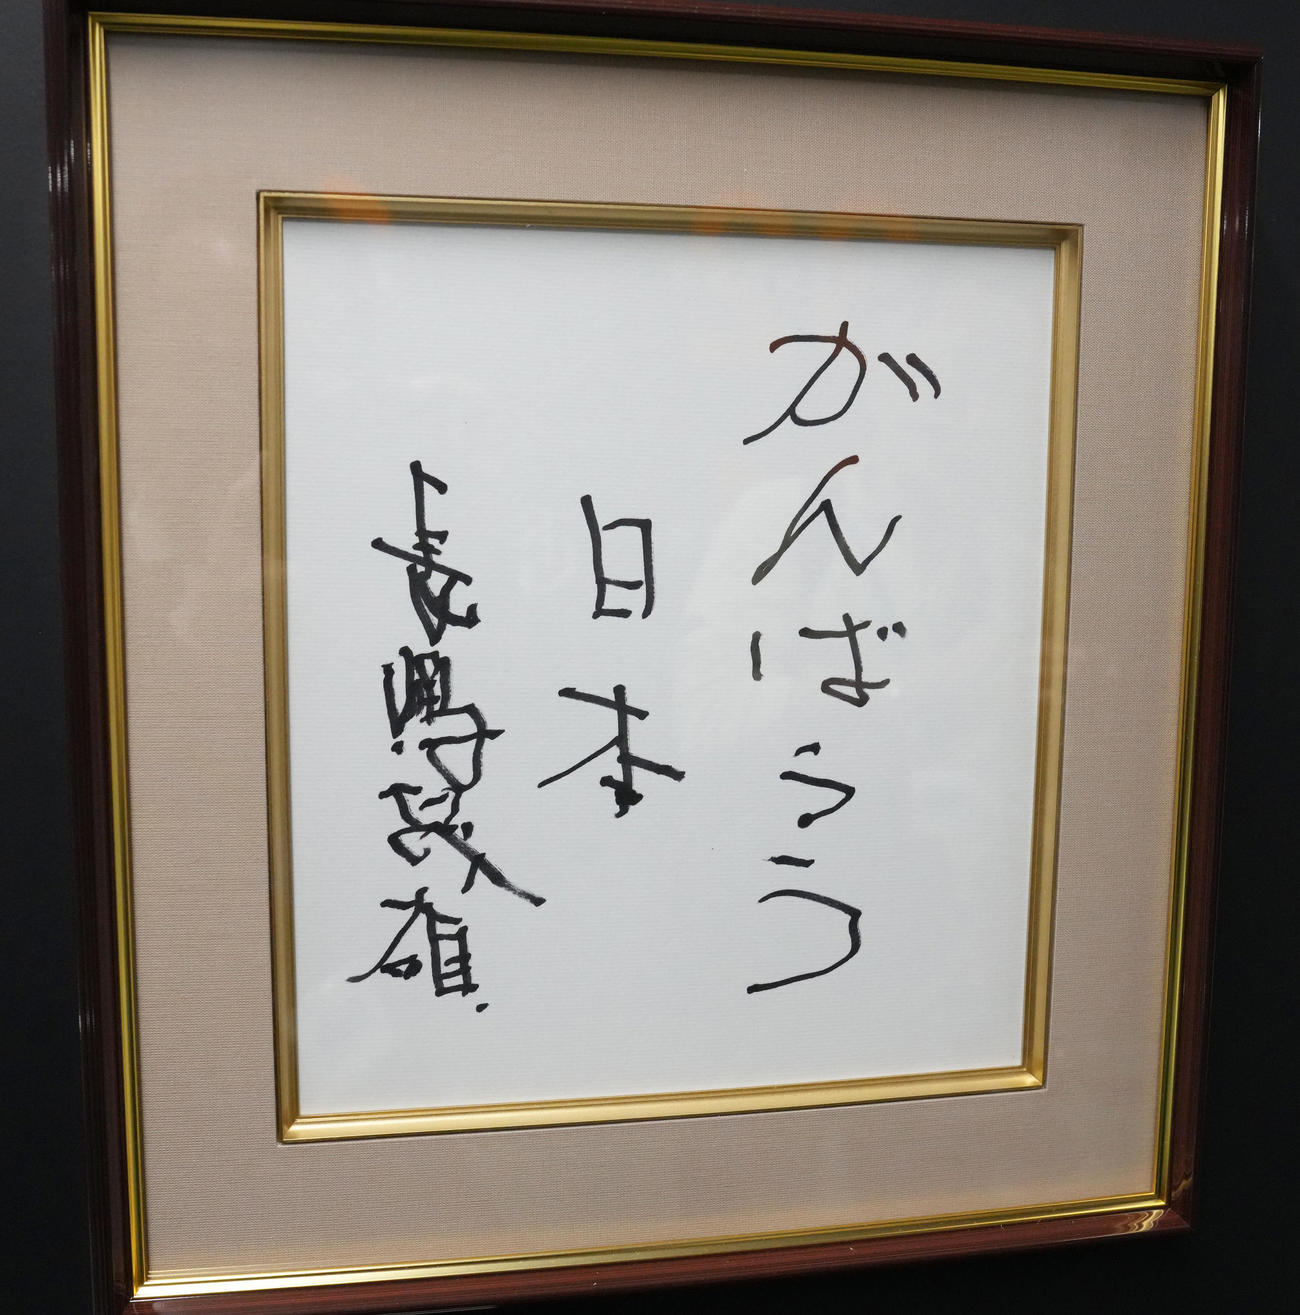 がんばろう
日本
長嶋茂雄